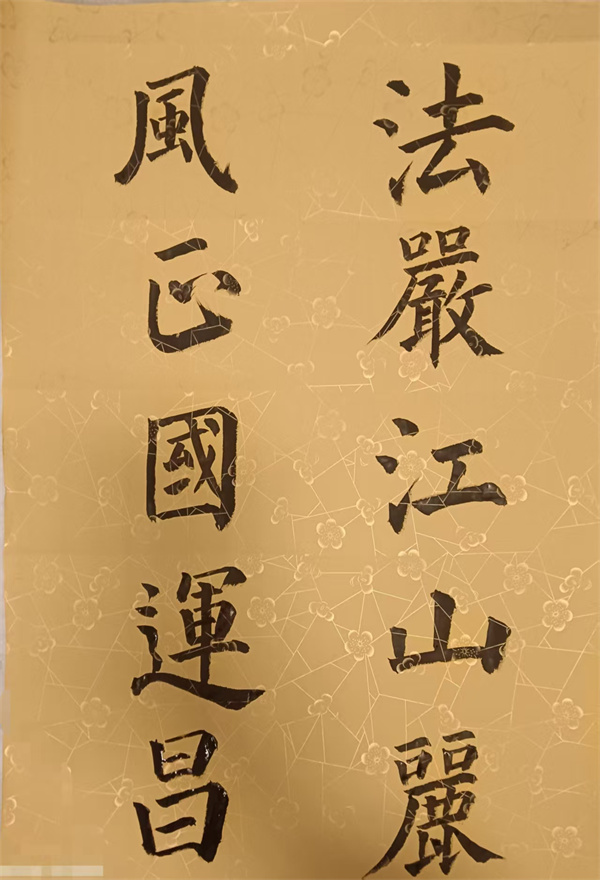 法嚴江山麗
風正國運昌